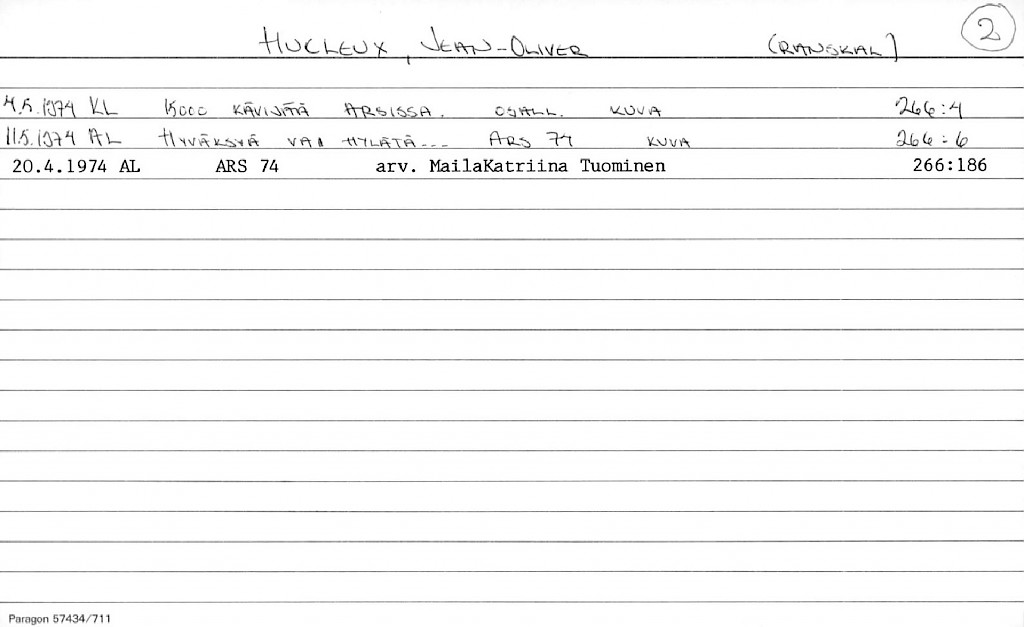 HUCLEUX, JEAN-OLIVER (RANSKAL) 2
4.5.1974 KL 15000 KÄVIJÄTÄ ARSISSA. OSALL. KUVA 266:4
11.5.1974 AL HYVÄKSYÄ VAI HYLÄTÄ--- ARS 74 KUVA 266:6
20.4.1974 AL ARS 74 arv. MailaKatriina Tuominen 266:186
Paragon 57434/711